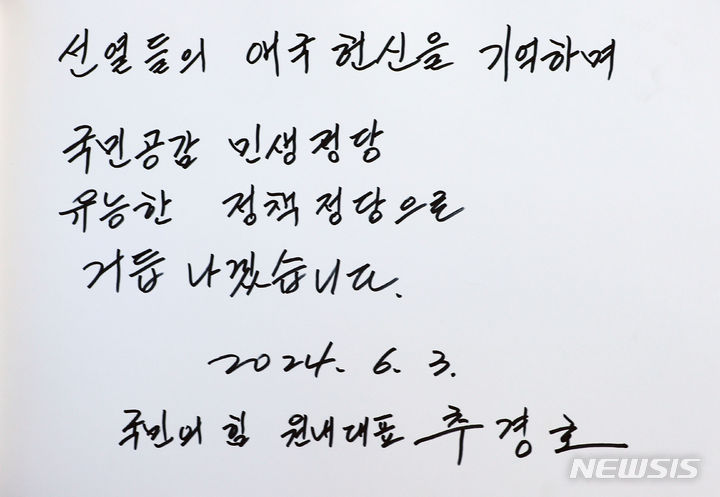 선열들의 애국헌신을 기억하며
국민공감 민생정당
유능한 정책정당으로
거듭 나겠습니다.
2024. 6. 3.
국민의힘 원내대표 추경호
NEWSIS